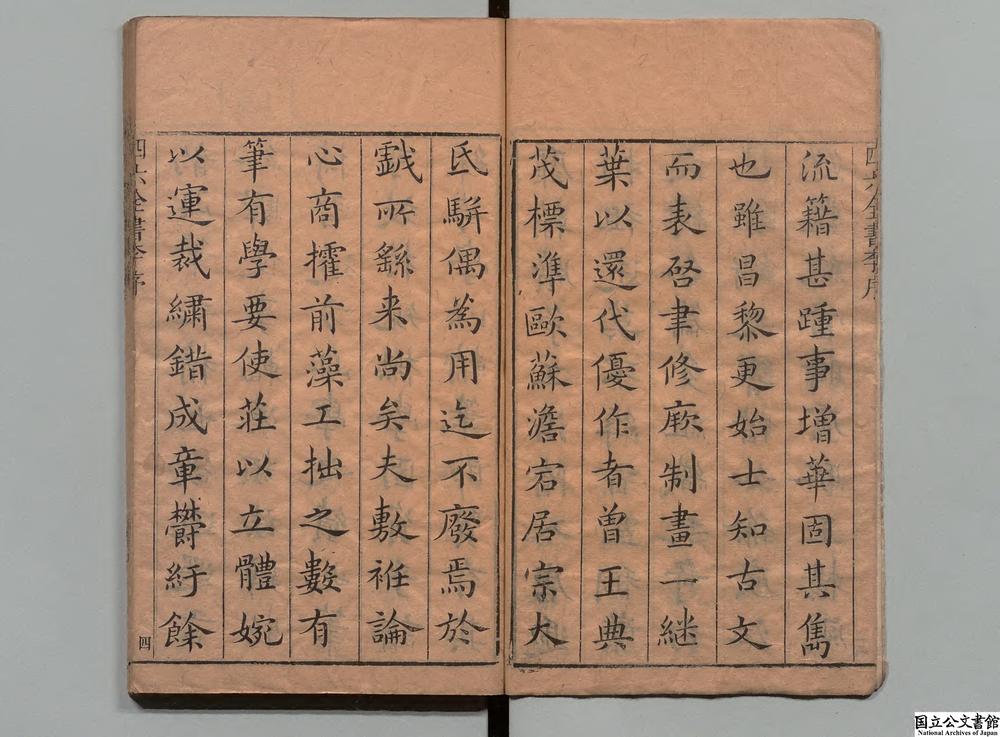 流籍甚踵事增華固其雋
也雖昌黎更始士知古文
而表啓聿修厥制畫一繼
葉以還代優作者曾王典
茂標準歐蘇澹宕居宗大
氐駢偶為用迄不廢焉於
戲所繇来尚矣夫敷袵論
心商㩴前藻工拙之數有
筆有學要使莊以立體婉
以運裁繡錯成章欝紆餘
四六全書李序
四六全書李序
四
国立公文書館
National Archives of Japan